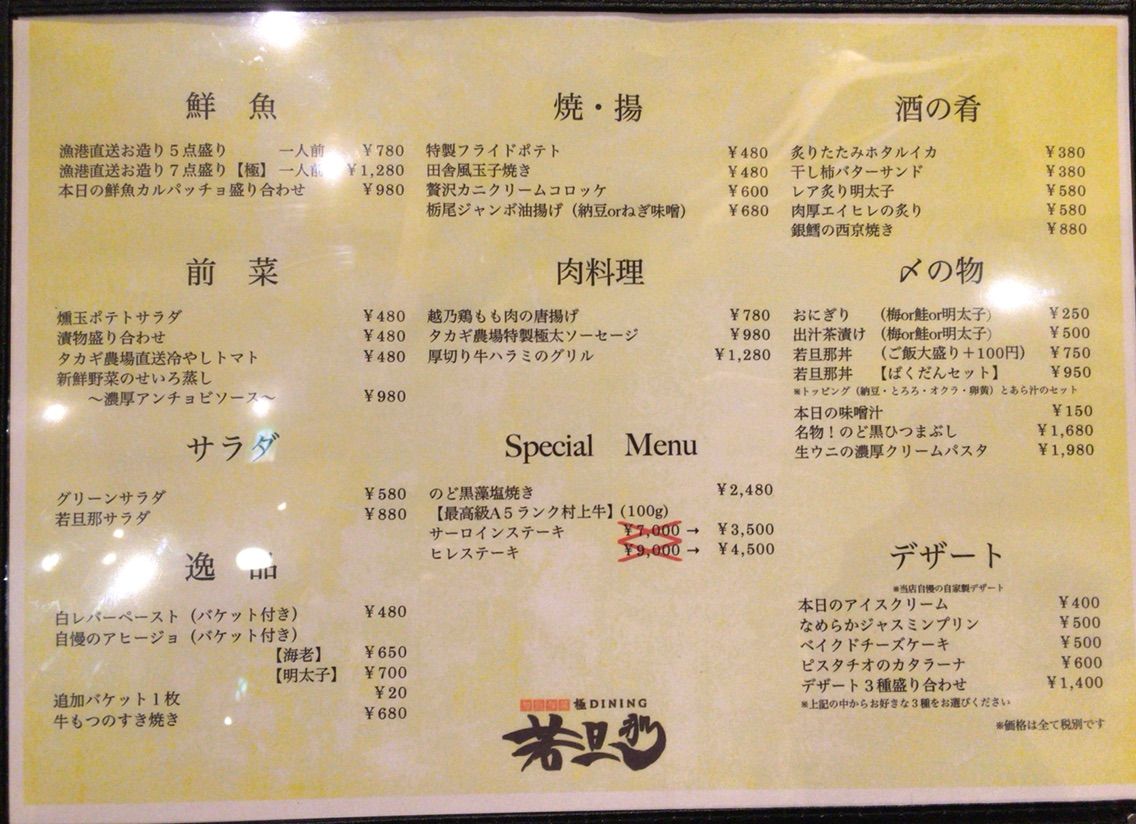 鮮 魚
漁港直送お造り５点盛り 一人前 ¥780
漁港直送お造り７点盛り【極】 一人前 ¥1,280
本日の鮮魚カルパッチョ盛り合わせ ¥980
前 菜
燻玉ポテトサラダ ¥480
漬物盛り合わせ ¥480
タカギ農場直送冷やしトマト ¥480
新鮮野菜のせいろ蒸し
～濃厚アンチョビソース～ ¥980
サラダ
グリーンサラダ ¥580
若旦那サラダ ¥880
逸 品
白レバーペースト（バケット付き） ¥480
自慢のアヒージョ（バケット付き）
【海老】 ¥650
【明太子】 ¥700
追加バケット１枚 ¥20
牛もつのすき焼き ¥680
焼・揚
特製フライドポテト ¥480
田舎風玉子焼き ¥480
贅沢カニクリームコロッケ ¥600
栃尾ジャンボ油揚げ（納豆orねぎ味噌） ¥680
肉料理
越乃鶏もも肉の唐揚げ ¥780
タカギ農場特製極太ソーセージ ¥980
厚切り牛ハラミのグリル ¥1,280
Special Menu
のど黒藻塩焼き ¥2,480
【最高級A５ランク村上牛】(100g)
サーロインステーキ ¥7,000 → ¥3,500
ヒレステーキ ¥9,000 → ¥4,500
極DINING
若旦那
酒の肴
炙りたたみホタルイカ ¥380
干し柿バターサンド ¥380
レア炙り明太子 ¥580
肉厚エイヒレの炙り ¥580
銀鱈の西京焼き ¥880
〆の物
おにぎり （梅or鮭or明太子） ¥250
出汁茶漬け （梅or鮭or明太子） ¥500
若旦那丼 （ご飯大盛り＋100円） ¥750
若旦那丼 【ばくだんセット】 ¥950
※トッピング（納豆・とろろ・オクラ・卵黄）とあら汁のセット
本日の味噌汁 ¥150
名物！のど黒ひつまぶし ¥1,680
生ウニの濃厚クリームパスタ ¥1,980
デザート
※当店自慢の自家製デザート
本日のアイスクリーム ¥400
なめらかジャスミンプリン ¥500
ベイクドチーズケーキ ¥500
ピスタチオのカタラーナ ¥600
デザート３種盛り合わせ ¥1,400
※上記の中からお好きな３種をお選びください
※価格は全て税別です